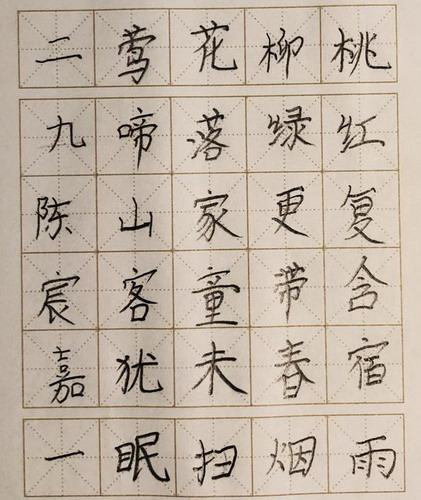 桃红复含宿雨
柳绿更带春烟
花落家童未扫
莺啼山客犹眠
二九陈宸嘉一